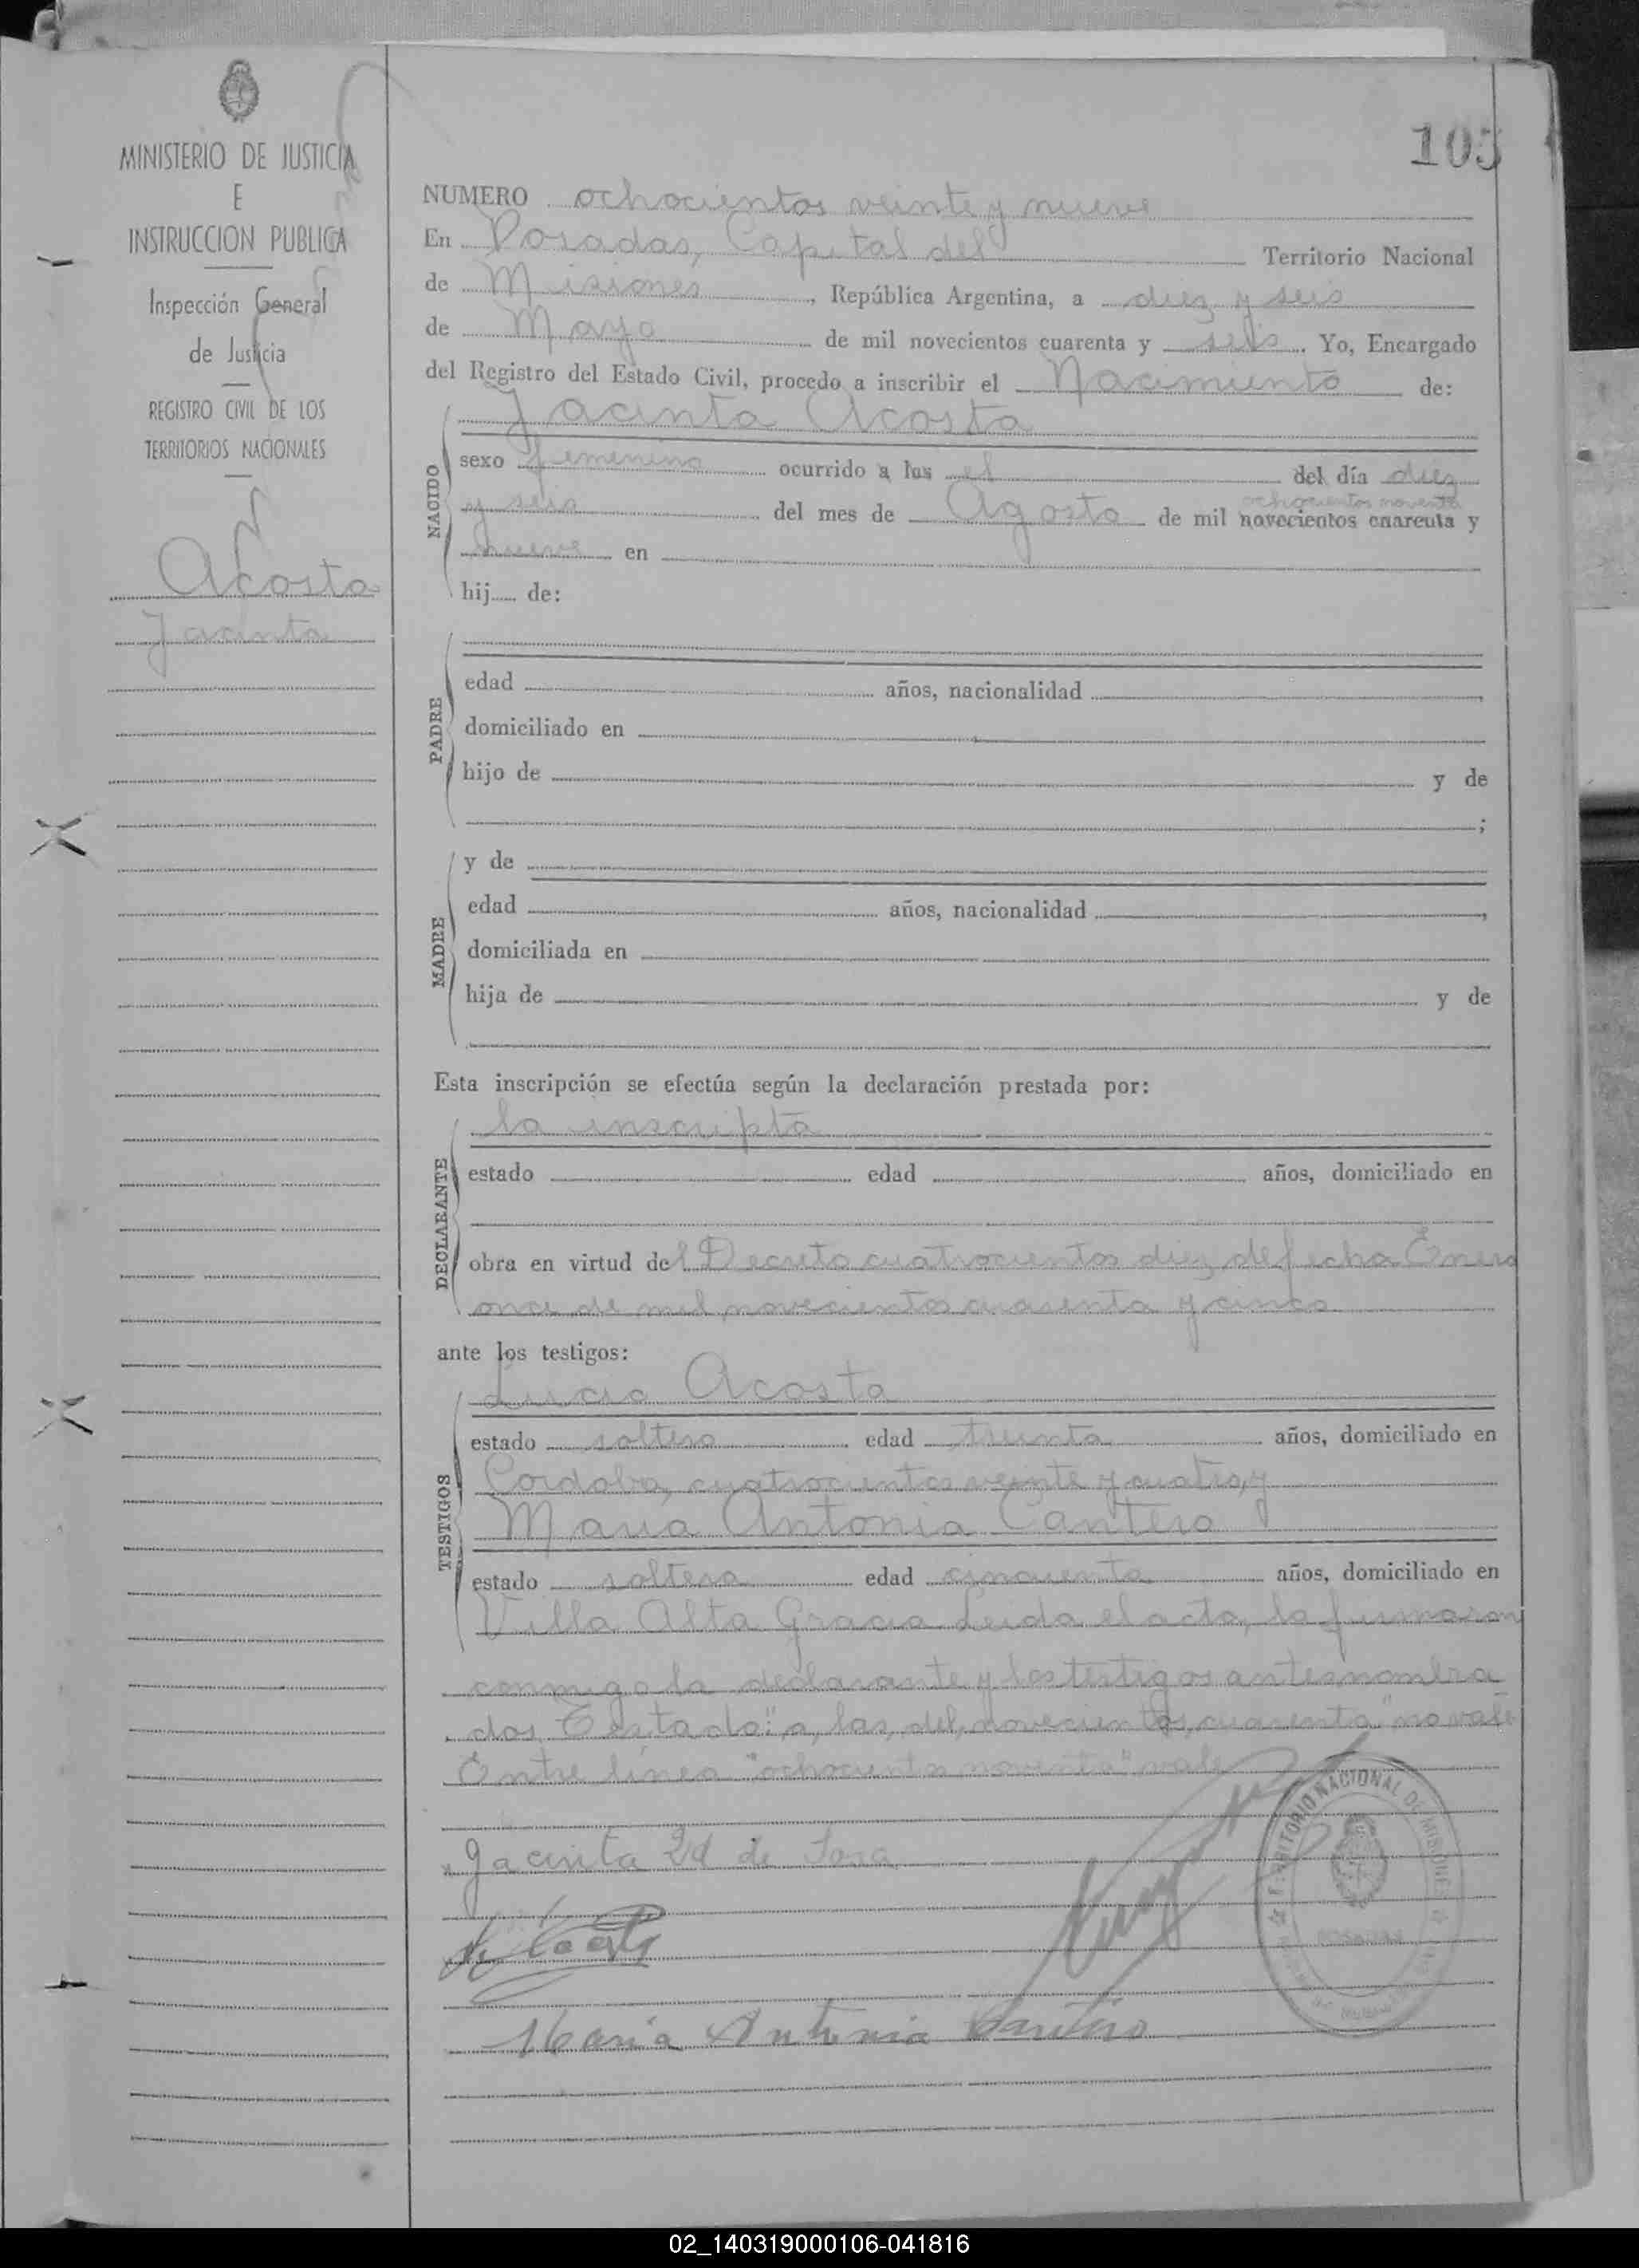 MINISTERIO DE JUSTICIA
E
INSTRUCCION PUBLICA
Inspección General
de Justicia
REGISTRO CIVIL DE LOS
TERRITORIOS NACIONALES
Acosta
Jacinta
103
NUMERO ochocientos veinte y nueve
En Posadas, Capital del Territorio Nacional
de Misiones, República Argentina, a diez y seis
de Mayo de mil novecientos cuarenta y seis. Yo, Encargado
del Registro del Estado Civil, procedo a inscribir el Nacimiento de:
NACIDO
Jacinta Acosta
sexo femenino ocurrido a las el del día diez
ochocientos noventa
y seis del mes de Agosto de mil novecientos cuarenta y
nueve en
hij de:
PADRE
edad años, nacionalidad
domiciliado en
hijo de y de
;
MADRE
y de
edad años, nacionalidad
domiciliada en
hija de y de
Esta inscripción se efectúa según la declaración prestada por:
DECLARANTE
la inscripta
estado edad años, domiciliado en
obra en virtud del Decreto cuatrocientos diez de fecha Enero
once de mil novecientos cuarenta y cinco
ante los testigos:
TESTIGOS
Lucio Acosta
estado soltero edad treinta años, domiciliado en
Cordoba, cuatrocientos veinte y cuatro, y
Maria Antonia Cantero
estado soltera edad cincuenta años, domiciliado en
Villa Alta Gracia Leida el acta, la firmaron
conmigo la declarante y los testigos antesnombra
dos Testado: "a, las, del, novecientos, cuarenta" no vale
Entre linea "ochocientos noventa" vale
Jacinta de Sosa
Maria Antonia Cantero
TERRITORIO NACIONAL DE MISIONES
02_140319000106-041816